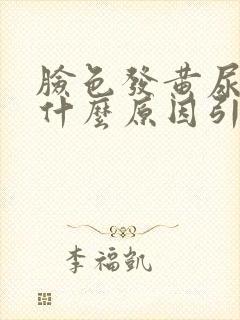 臉色發黃尿
什麼原因引
李福凱